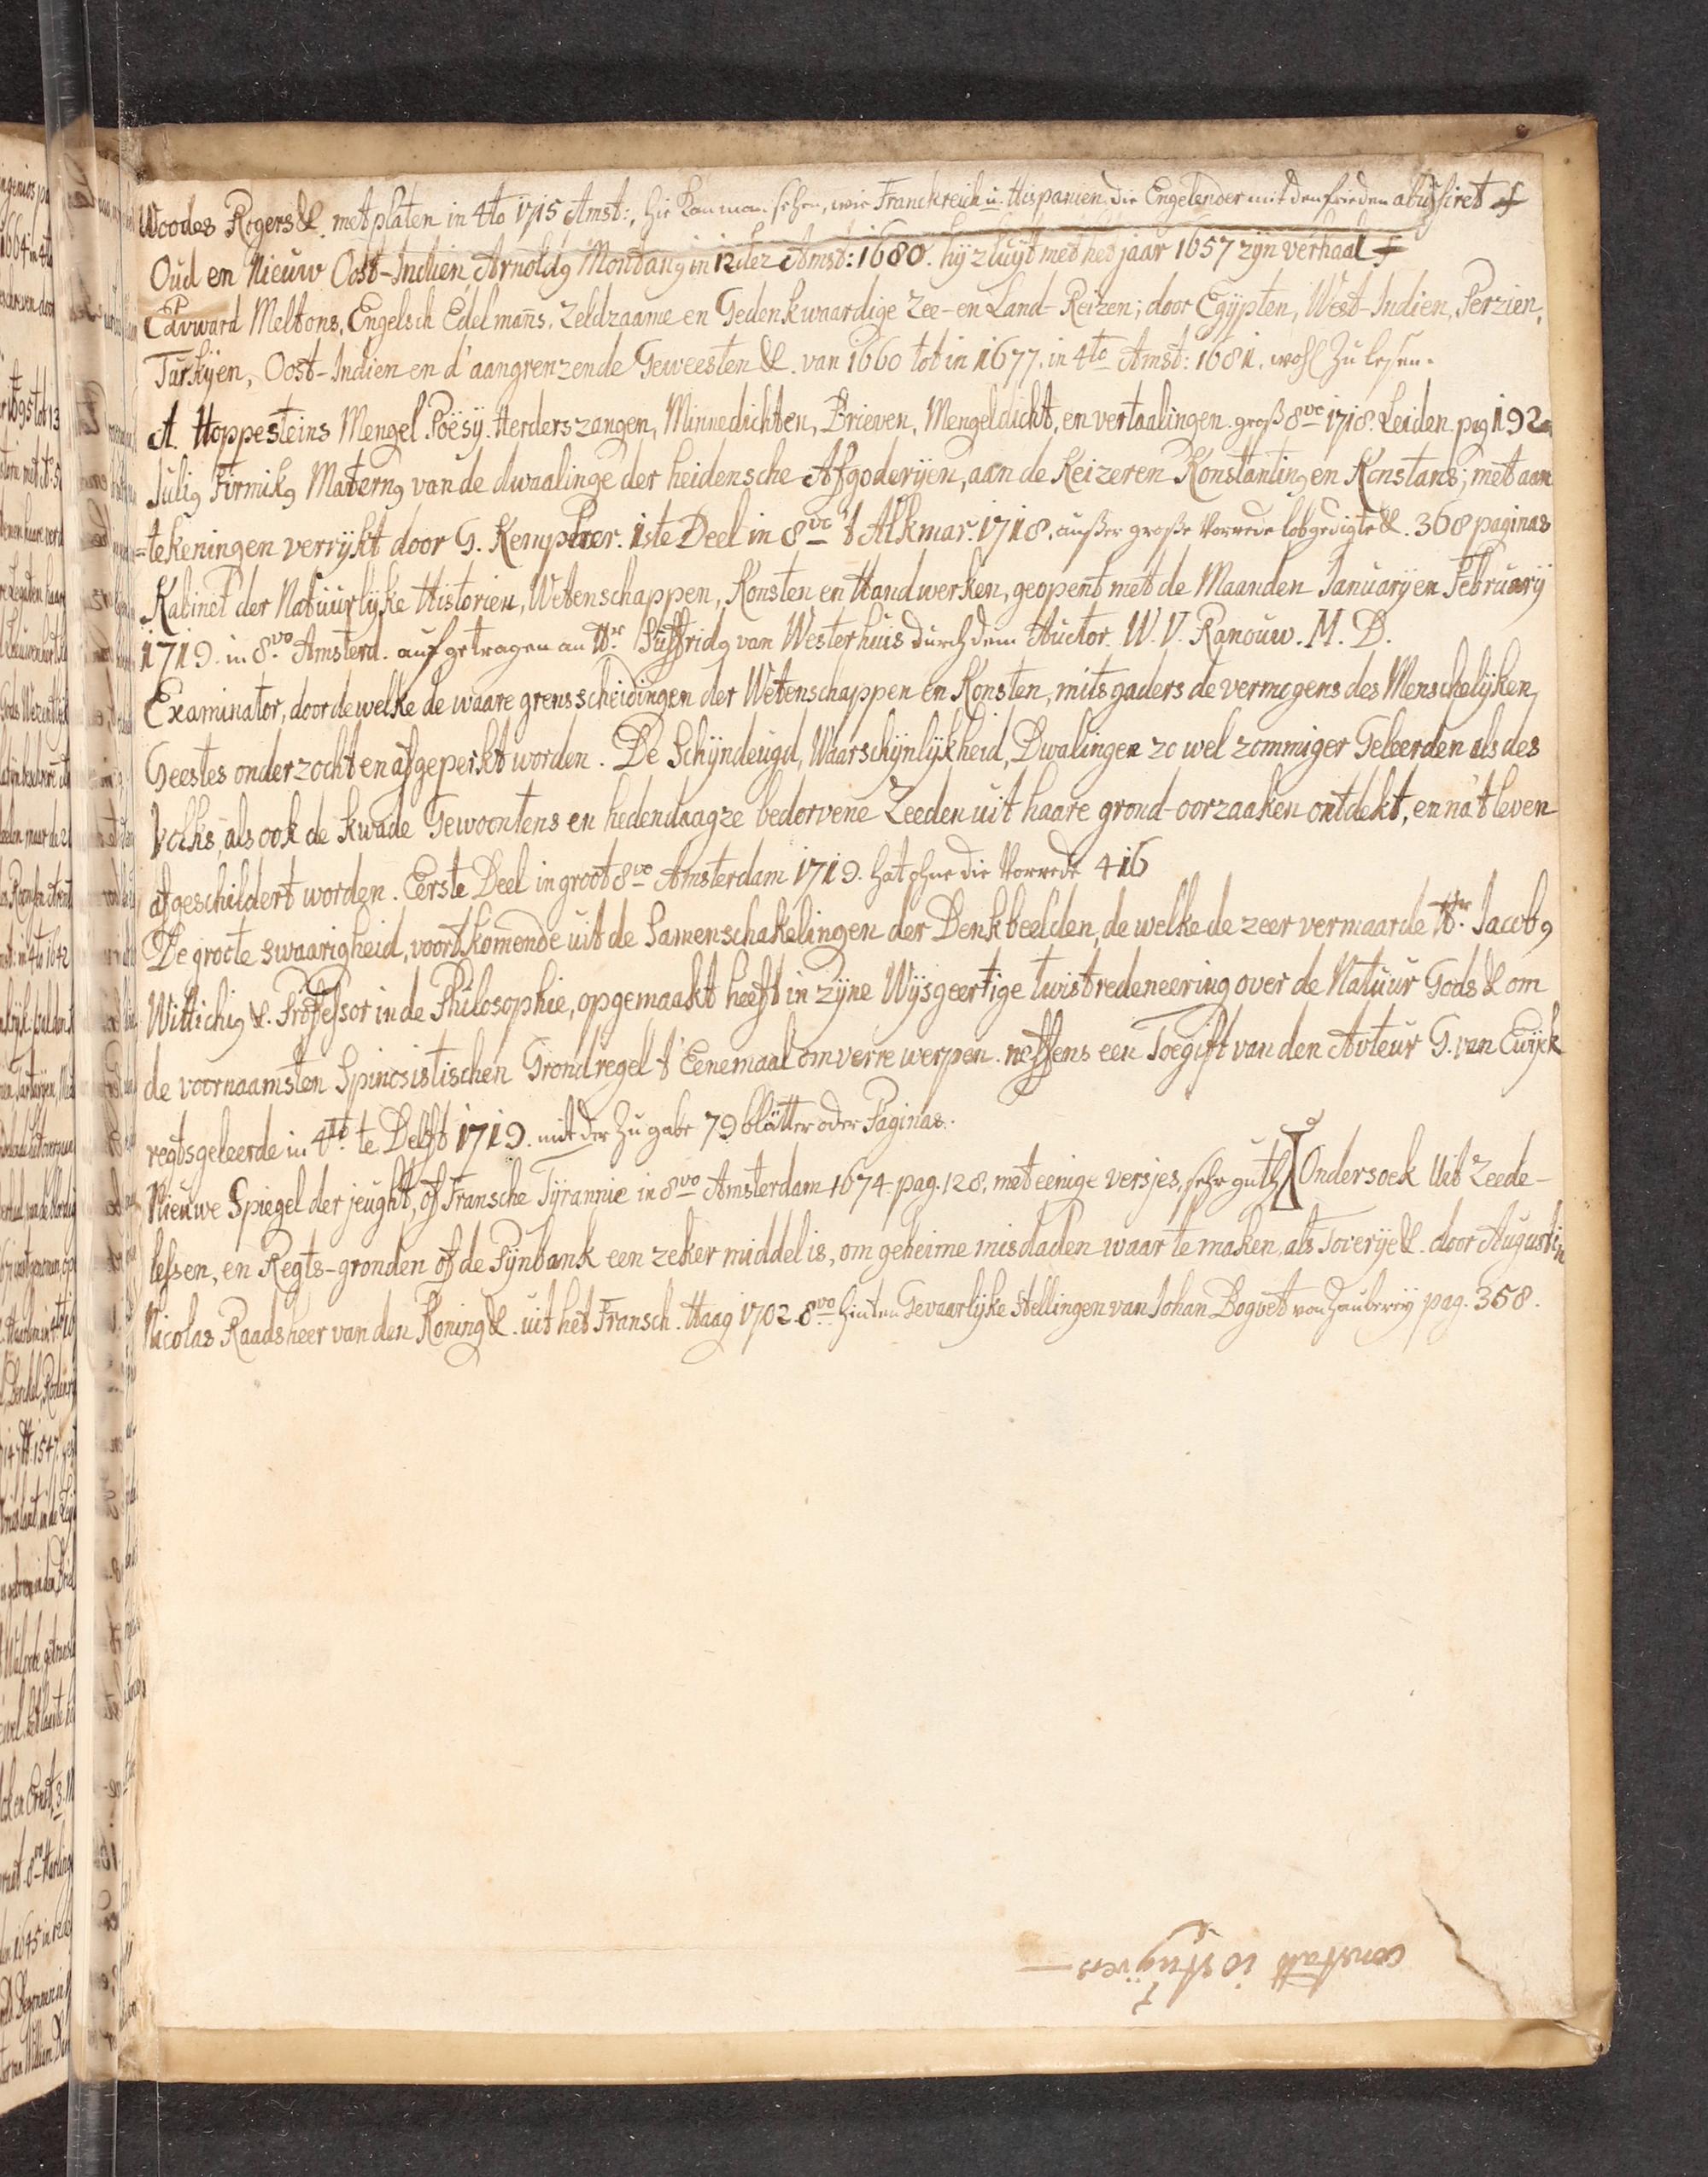 Woodes Rogers &. met platen in 4to 1715 Amst:, hie kan man sehen, wie Franckreich u. Hispanien die Engelender mit den frieden abusiret
Oud en Nieuw Oost-Indien, Arnoldꝰ Montanꝰ in 12dez Amst: 1680. hij zluijt met het jaar 1657 zijn verhaal
Edvward Meltons, Engelsch Edelmans, Zeldzaame en Gedenkwaardige Zee-en Land-Reizen; door Egijpten, West-Indien, Perzien,
Turkijen, Oost-Indien en d'aangrenzende Geweesten &. van 1660 tot in 1677. in 4to Amst: 1681. wohl zu lesen.
A. Hoppesteins Mengel Poësij. Herderszangen, Minnedichten, Brieven, Mengeldicht, en vertaalingen. groß 8vo 1718. Leiden. pag 192
Juliꝰ Firmikꝰ Maternꝰ van de dwaalinge der heidensche Afgoderijen, aan de Keizeren Konstantinꝰ en Konstans; met aan
=tekeningen verrijkt door G. Kempher. 1ste Deel in 8vo 't Alkmar. 1718. außer große Vorrede lobgedigte &. 368 paginas
Kabinet der Natuurlijke Historien, Wetenschappen, Konsten en Handwerken, geopent met de Maanden Januarij en Februarij
1719. in 8vo Amsterd. aufgetragen an Hr. Suffridꝰ van Westerhuis durch dem Auctor. W. V. Ranouw. M. D.
Examinator, door dewelke de waare grensscheidingen der Wetenschappen en Konsten, mitsgaders de vermogens des Menschelijken
Geestes onderzocht en afgeperkt worden. De Schijndeugd, Waarschijnlijkheid, Dwalingen zo wel zommiger Geleerden als des
Volks, als ook de kwade Gewoontens en hedendaagze bedorvene Zeeden uit haare grond-oorzaaken ontdekt, en na 't leven
afgeschildert worden. Eerste Deel in groot 8vo Amsterdam 1719. hat ohne die Vorrede 416
De groote swaarigheid, voortkomende uit de Samenschakelingen der Denkbeelden, de welke de zeer vermaarde Hr. Jacobꝰ
Wittichiꝰ &. Professor in de Philosophie, opgemaakt heeft in zijne Wijsgeertige twistredeneering over de Natuur Gods & om
de voornaamsten Spinosistischen Grondregel t'Eenemaal om verre werpen. neffens een Toegift van den Auteur G. van Ewijck
regtsgeleerde in 4to te Delft 1719. mit der Zugabe 79 blätter oder Paginas.
Nieuwe Spiegel der jeught, of Fransche Tijrannie in 8vo Amsterdam 1674. pag. 128. met eenige versjes, sehr guth Ondersoek Uit Zeede-
lessen, en Regts-gronden of de Pijnbank een zeker middel is, om geheime misdaden waar te maken, als Toverije &. door Augustin
Nicolas Raadsheer van den Koning &. uit het Fransch. Haag 1702. 8vo hinten Gevaarlijke Stellingen van Johan Bogvet von Zauberey pag. 358.